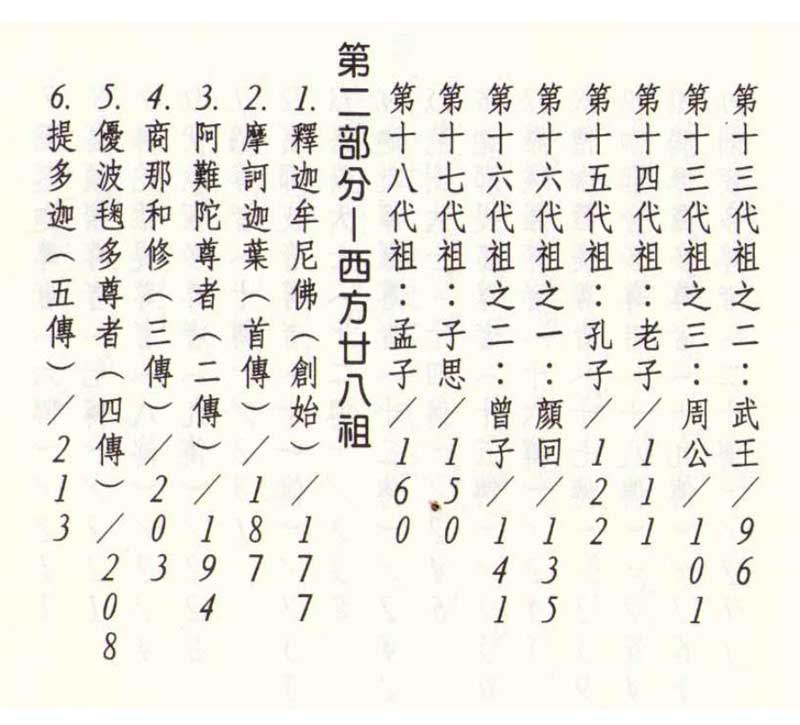 第十三代祖之二：武王/96
第十三代祖之三：周公/101
第十四代祖：老子/111
第十五代祖：孔子/122
第十六代祖之一：顏回/135
第十六代祖之二：曾子/141
第十七代祖：子思/150
第十八代祖：孟子/160
第二部分—西方廿八祖
1.釋迦牟尼佛（創始）/177
2.摩訶迦葉（首傳）/187
3.阿難陀尊者（二傳）/194
4.商那和修（三傳）/203
5.優波毱多尊者（四傳）/208
6.提多迦（五傳）/213